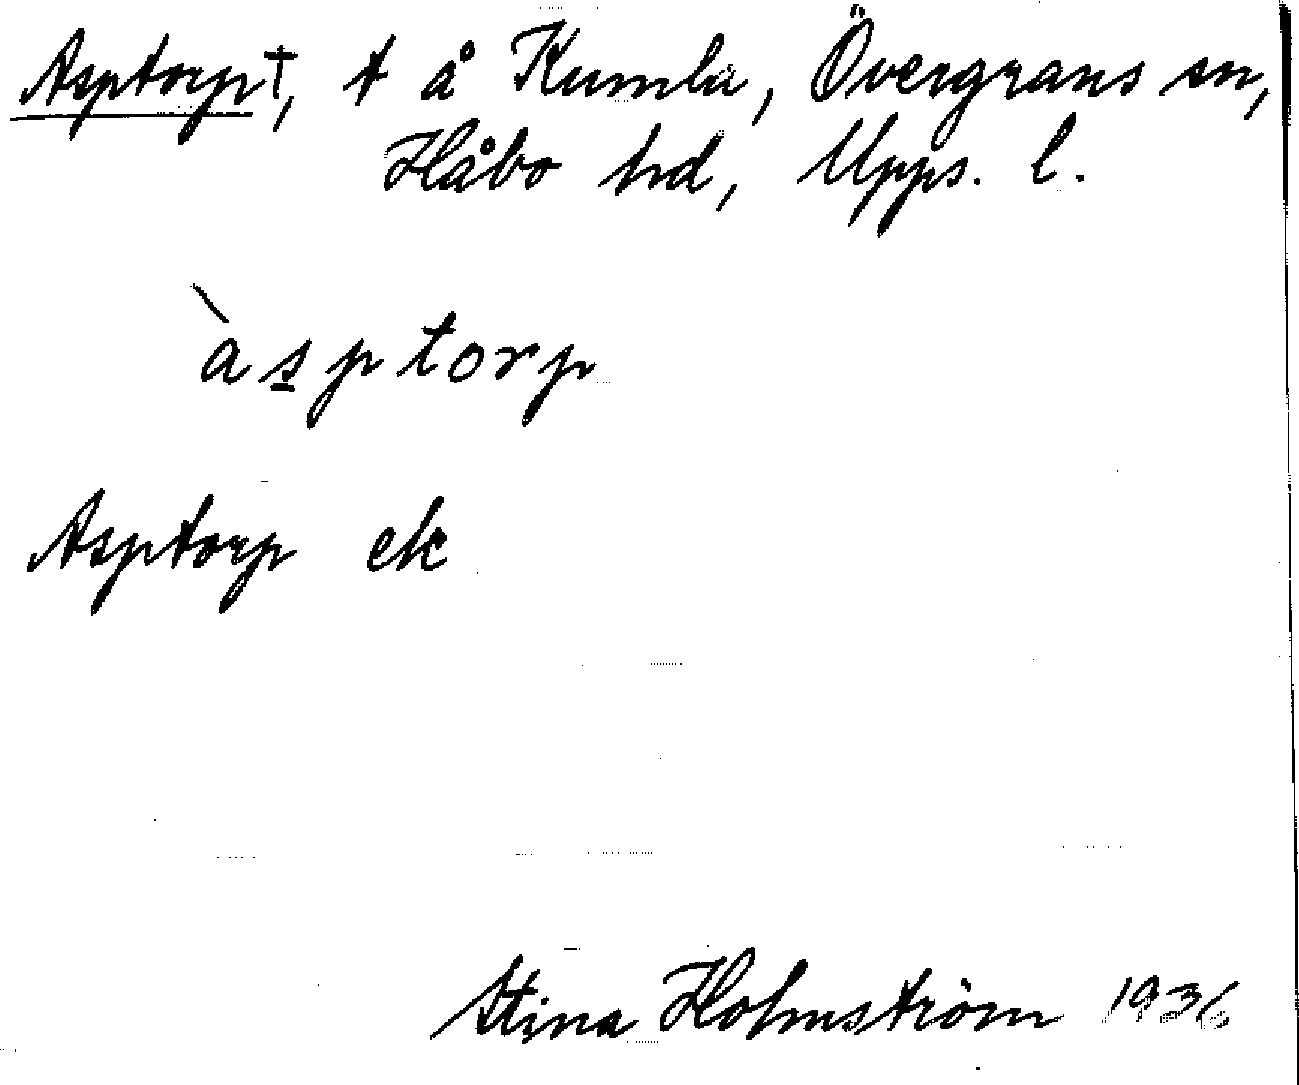 Asptorp†, t å Kumla, Övergrans sn,
Håbo hd, Upps. l.
àsptorp
Asptorp ek
Stina Holmström 1936